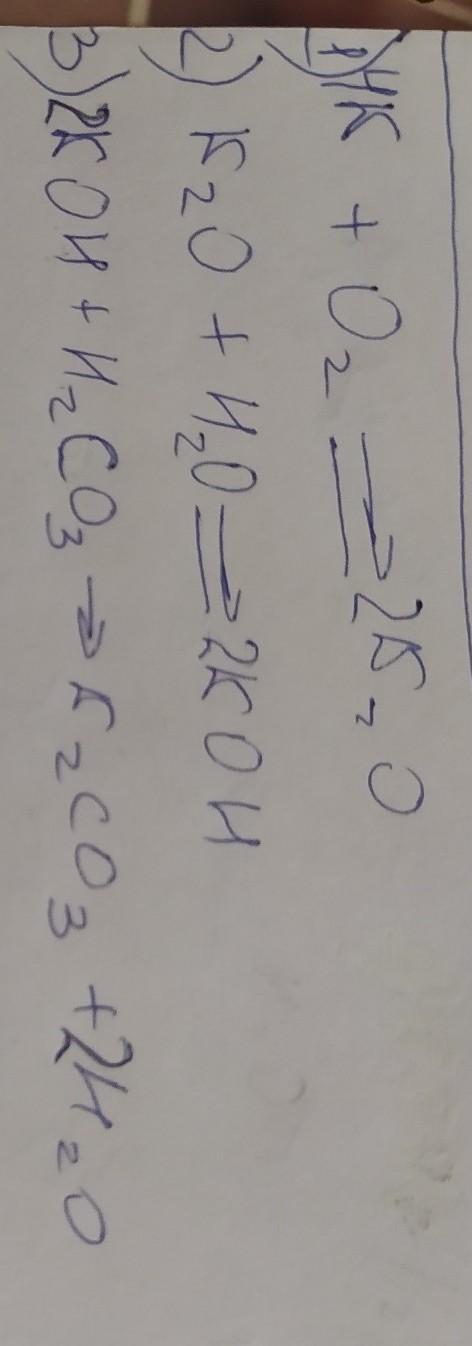 1) 4K + O₂ ⇒ 2K₂O
2) K₂O + H₂O ⇒ 2KOH
3) 2KOH + H₂CO₃ → K₂CO₃ + 2H₂O